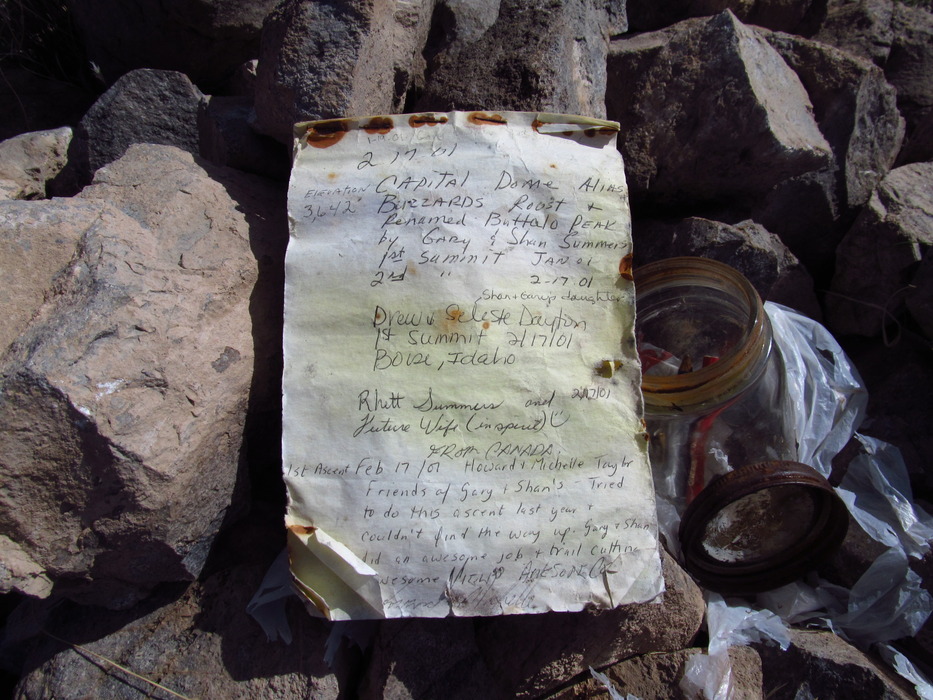 2 17 01
ELEVATION CAPITAL DOME ALIAS
3,642" BUZZARDS ROOST +
Renamed Buffalo PEAK
by GARY & Shan Summers
1st Summit JAN 01
2nd " 2-17-01
Shan + Gary's daughter
Drew & Seleste Dayton
1st Summit 2/17/01
BOISE, Idaho
Rhett Summers and 2/17/01
Future Wife (in spirit)
FROM CANADA
1st Ascent Feb 17/01 Howard & Michelle Taylor
Friends of Gary & Shan's - Tried
to do this ascent last year &
couldn't find the way up. Gary & Shan
did an awesome job & trail cutting
Awesome AWESOME